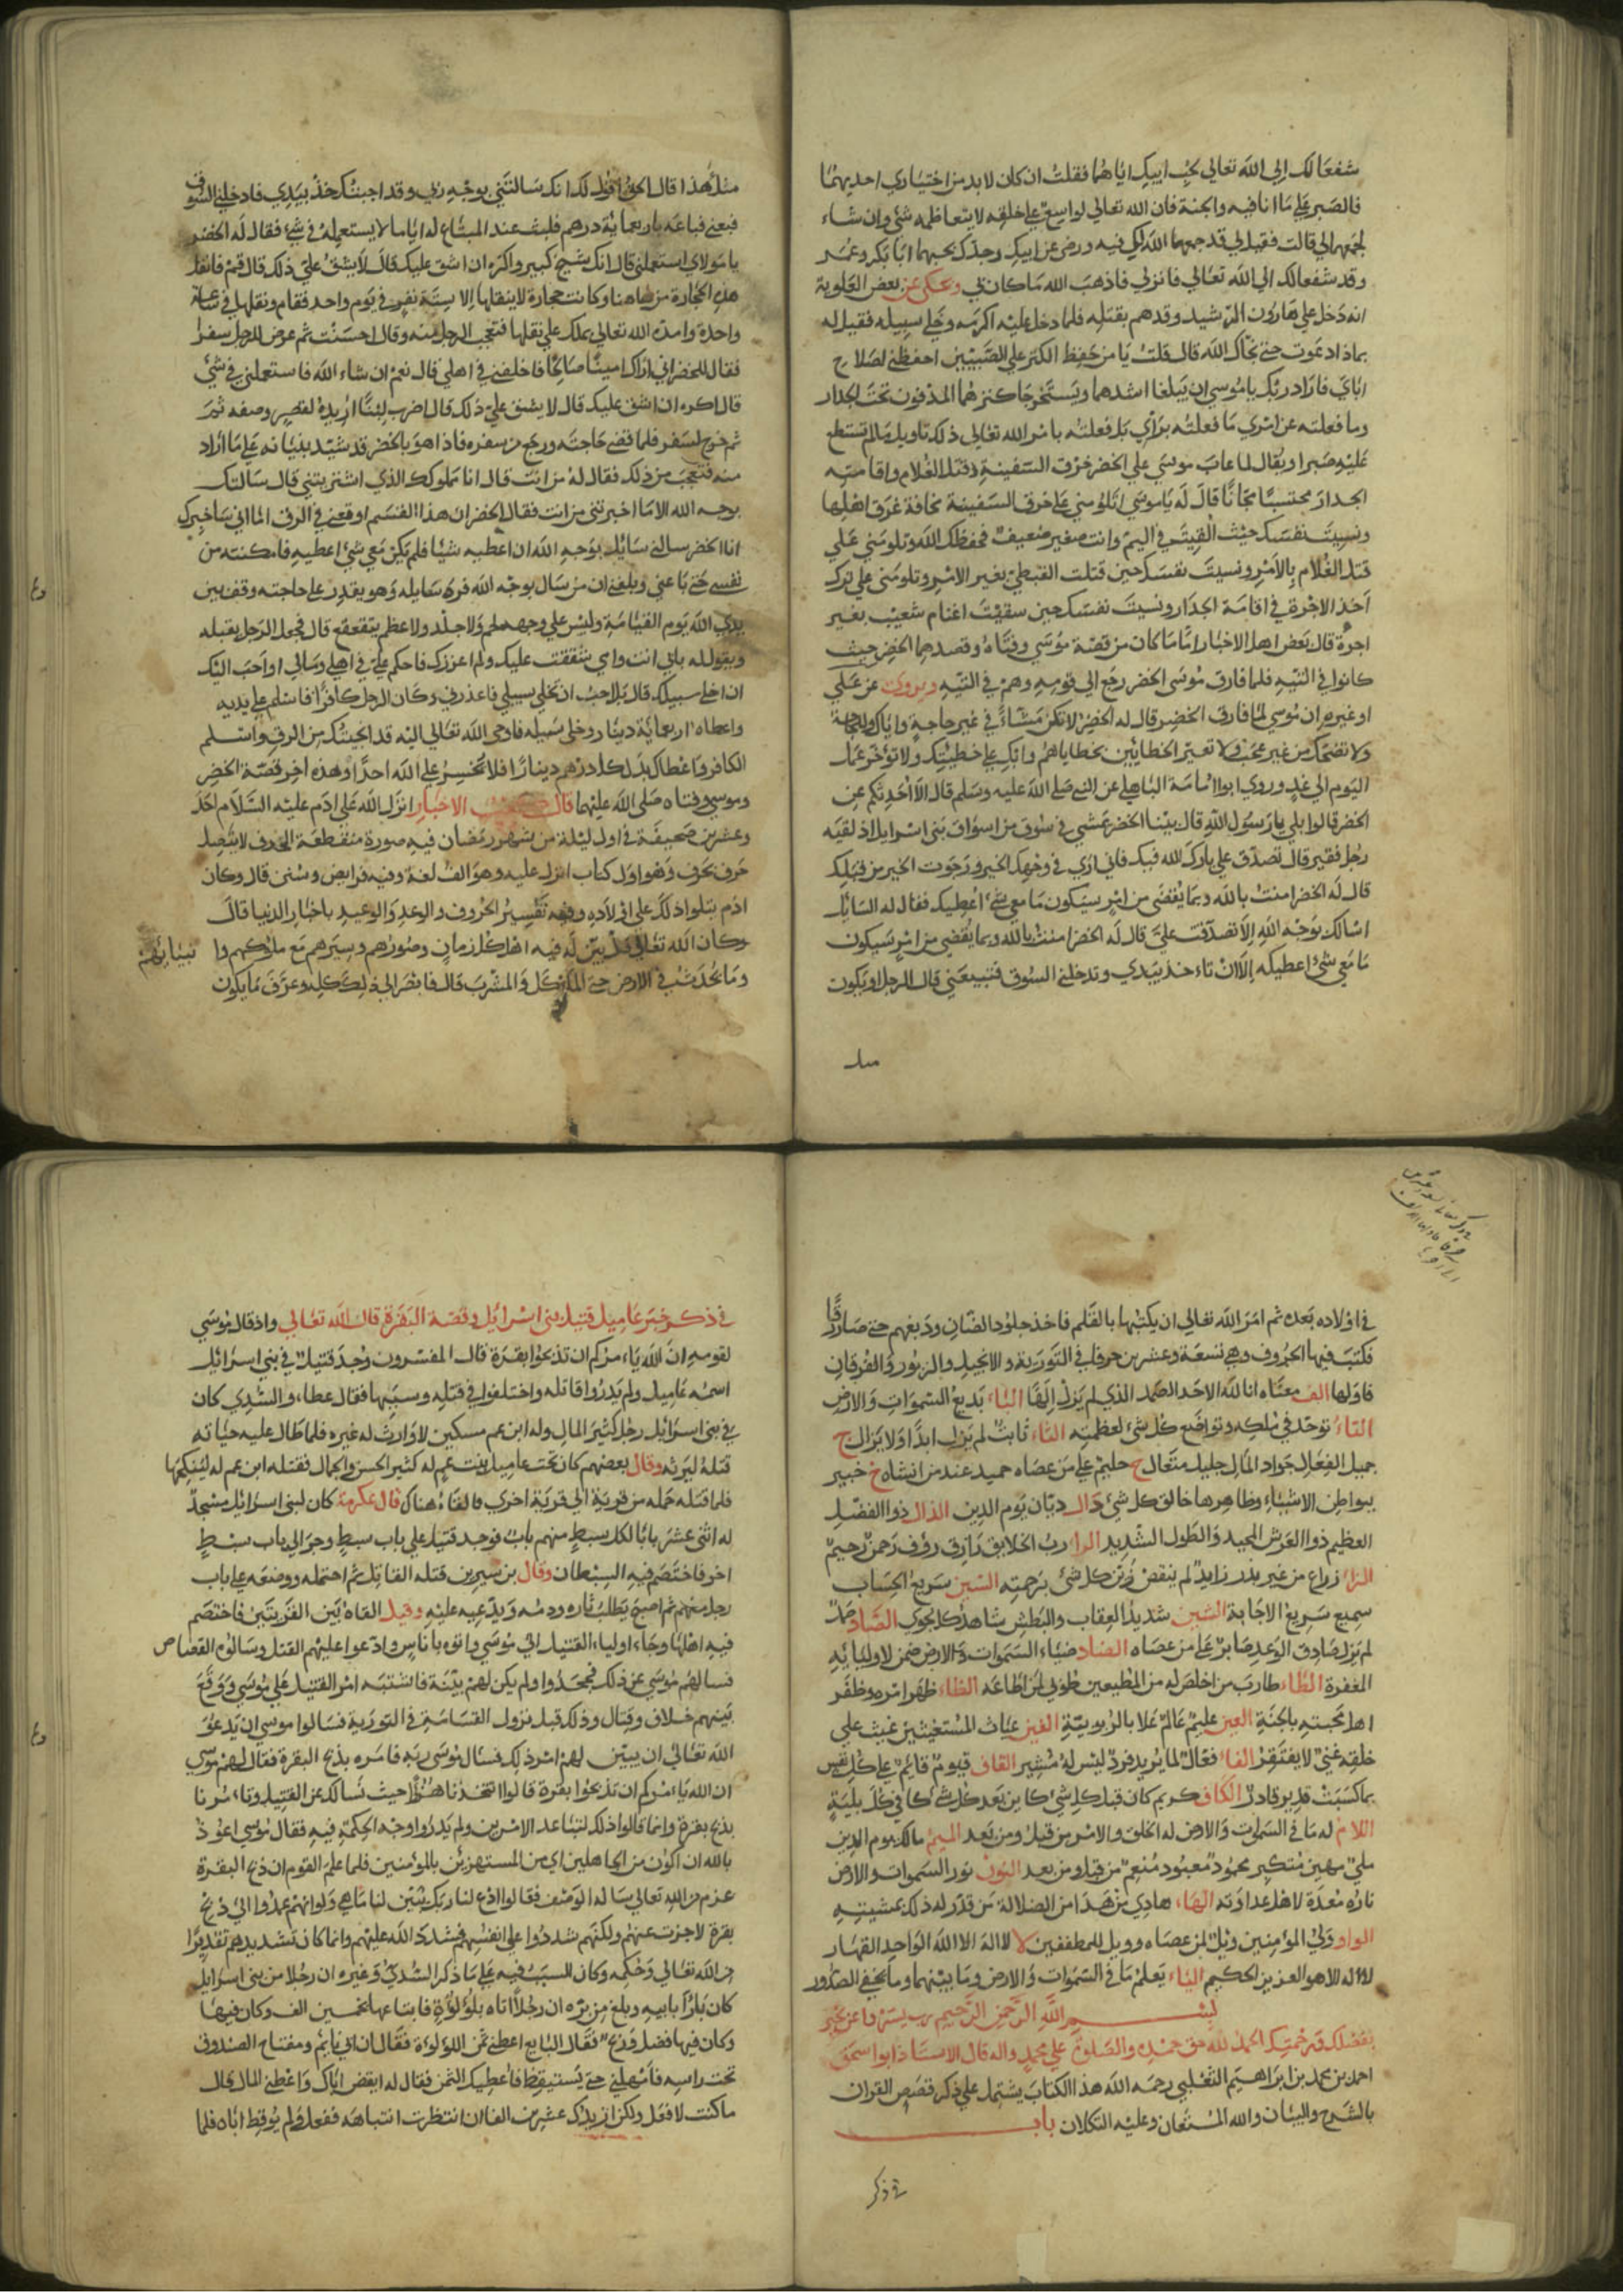 شفعا لك الى الله تعالى بحب ابيك اياهما فقلت ان كان لابد من اختياري احديهما
فالصبر على ما انا فيه والجنة فان الله تعالى لواسع على خلقه لا يتعاظمه شئ وان شاء
لجمعهما لي قالت فقيل لي قد جمعهما الله لك فيه ورضي عن ابيك وجدك بحبهما ابا بكر وعمر
وقد شفعا لك الى الله تعالى فانزلي فاذهب الله ما كان بي وحكى عن بعض العلوية
انه دخل على هارون الرشيد وقد هم بقتله فلما دخل عليه اكرمه وخلى سبيله فقيل له
بماذا دعوت حتى نجاك الله قال قلت يا من حفظ الكنز على الصبيين احفظني لصلاح
اباي فاراد ربك يا موسى ان يبلغا اشدهما ويستخرجا كنزهما المدفون تحت الجدار
وما فعلته عن امري ما فعلته برأي بل فعلته بامر الله تعالى ذلك تاويل ما لم تستطع
عليه صبرا ويقال لما عاب موسى على الخضر خرق السفينة وقتل الغلام واقامته
الجدار محتسبا مجانا قال له يا موسى اتلومني على خرق السفينة مخافة غرق اهلها
ونسيت نفسك حيث القيت في اليم وانت صغير ضعيف فحفظك الله وتلومني على
قتل الغلام بالامر ونسيت نفسك حين قتلت القبطي بغير الامر وتلومني على ترك
اخذ الاجرة في اقامة الجدار ونسيت نفسك حين سقيت اغنام شعيب بغير
اجرة قال بعض اهل الاخبار اما ما كان من قصة موسى وفتاه وقصدهما الخضر حيث
كانوا في التيه فلما فارق موسى الخضر رجع الى قومه وهم في التيه ويروى عن علي
او غيره ان موسى لما فارق الخضر قال له الخضر لا تكن مشاء في غير حاجة واياك واللجاجة
ولا تضحك من غير عجب ولا تعير الخطائين بخطاياهم وابك على خطيئتك ولا تؤخر عمل
اليوم الى غد وروي ابوا امامة الباهلي عن النبي صلى الله عليه وسلم قال الا احدثكم عن
الخضر قالوا بلى يا رسول الله قال بينا الخضر يمشي في سوق من اسواق بني اسرايل اذ لقيه
رجل فقير قال تصدق علي بارك الله فيك فاني ارى في وجهك الخير ورجوت الخير من قبلك
قال له الخضر امنت بالله وبما يقضى من امر سيكون ما معي شئ اعطيك فقال له السائل
اسالك بوجه الله الا تصدقت علي قال له الخضر امنت بالله وبما يقضي من امر سيكون
ما معي شئ اعطيكه الا ان تاخذ بيدي وتدخلني السوق فتبيعني قال الرجل او يكون
مثل
مثل هذا قال الحق اقول لك انك سالتني بوجه ربي وقد اجبتك خذ بيدي فادخلني السوق
فبعني فباعه باربعماية درهم فلبث عند المبتاع له اياما لا يستعمله في شئ فقال له الخضر
يا مولاي استعملني قال انك شيخ كبير واكره ان اشق عليك قال لا يشق علي ذلك قال قم فانقل
هذه الحجارة من هاهنا وكانت حجارة لا ينقلها الا ستة نفر في يوم واحد فقام ونقلها في ساعة
واحدة وامده الله تعالى بملك على نقلها فتعجب الرجل منه وقال احسنت ثم عرض للرجل سفر
فقال للخضر اني اراك امينا صالحا فاخلفني في اهلي قال نعم ان شاء الله فاستعملني في شئ
قال اكره ان اشق عليك قال لا يشق علي ذلك قال اضرب لبنا اريده لقصر وصفه ثم
ثم خرج لسفر فلما قضى حاجته ورجع من سفره فاذا هو بالخضر قد شيد بنيانه على ما اراد
منه فتعجب من ذلك فقال له من انت قال انا مملوكك الذي اشتريتني قال سالتك
بوجه الله الا ما اخبرتني من انت فقال الخضر ان هذا القسم اوقعني في الرق اما اني ساخبرك
انا الخضر سالني سايل بوجه الله ان اعطيه شيئا فلم يكن معي شئ اعطيه فامكنته من
نفسي حتى باعني وبلغني ان من سال بوجه الله فرد سايله وهو يقدر على حاجته وقف بين
يدي الله يوم القيامة وليس على وجهه لحم ولا جلد ولا عظم يتقعقع قال فجعل الرجل يقبله
ويقول له بابي انت وامي شققت عليك ولم اعرفك فاحكم علي في اهلي ومالي او احب اليك
ان اخلي سبيلك قال بل احب ان تخلي سبيلي فاعذرني وكان الرجل كافرا فاسلم على يديه
واعطاه اربعماية دينار وخلى سبيله فاوحى الله تعالى اليه قد انجيتك من الرق واسلم
الكافر واعطاك بدل كل درهم دينارا فلا تخسر على الله احدا وهذه اخر قصة الخضر
وموسى وفتاه صلى الله عليهما قال كعب الاخبار انزل الله على ادم عليه السلام احد
وعشرين صحيفة في اول ليلة من شهر رمضان فيه صورة منقطعة الحروف لا يتصل
حرف بحرف وهو اول كتاب انزل عليه وهو الف لغة وفيه فرايض وسنن قال وكان
ادم يتلوا ذلك على اولاده وفيه تفسير الحروف والوعد والوعيد باخبار الدنيا قال
وكان الله تعالى قد بين له فيه اهل كل زمان وصورهم وسيرهم مع ملوكهم وا
وما يحدث في الارض حتى الماكل والمشرب قال فابصر الى ذلك كله وعرف ما يكون
في اولاده بعده ثم امر الله تعالى ان يكتبها بالقلم فاخذ جلود الضان ودبغهم حتى صار رقا
فكتب فيها الحروف وهي تسعة وعشرين حرفا في التورية والانجيل والزبور والفرقان
فاولها الف معناه انا الله الاحد الصمد الذي لم يزل الها الباء بديع السموات والارض
التاء توحد في ملكه وتواضع كل شئ لعظمته الثاء ثابت لم يزل ابدا ولا يزال ج
جميل الفعال جواد المال جليل متعال ح حليم على من عصاه حميد عند من انشاه خ خبير
ببواطن الاشياء وظاهرها خالق كل شئ دال ديان يوم الدين الذال ذوا الفضل
العظيم ذوا العرش المجيد والطول الشديد الراء رب الخلايق رازق رؤف رحمن رحيم
الزاء زراع من غير بذر زايد لم ينقص زين كل شئ برحمته السين سريع الحساب
سميع سريع الاجابة الشين شديد العقاب والبطش شاهد كل نجوى الصاد صمد
لم يزل صادق الوعد صابر على من عصاه الضاد ضياء السموات والارض ضمن لاوليايه
المغفرة الطاء طارب من اخلص له من المطيعين طوبى لمن اطاعه الظاء ظهر امره وظفر
اهل محبته بالجنة العين عليم عالم علا بالربوبية الغين غياث المستغيثين غيث على
خلقه غني لا يفتقر الفاء فعال لما يريد فرد ليس له مشير القاف قيوم قائم على كل نفس
بما كسبت قدير قادر الكاف كريم كان قبل كل شئ كاين بعد كل شئ كافي كل بلية
اللام له ما في السموات والارض له الخلق والامر من قبل ومن بعد الميم مالك يوم الدين
ملي مهين متكبر محمود معبود منعم من قبل ومن بعد النون نور السموات والارض
ناره معدة لاهل عداوته الهاء هادي من هدا من الضلالة من قدر له ذلك بمشيته
الواو ولي المؤمنين ويل لمن عصاه وويل للمطففين لا لا اله الا الله الواحد القهار
لا اله الا هو العزيز الحكيم الياء يعلم ما في السموات والارض وما بينهما وما يخفي الصدور
بسم الله الرحمن الرحيم رب يسر واعن بخير
بفضلك ورحمتك الحمد لله حق حمده والصلوة على محمد واله قال الاستاذ ابوا اسحق
احمد بن محمد بن ابراهيم الثعلبي رحمه الله هذا الكتاب يشتمل على ذكر قصص القران
بالشرح والبيان والله المستعان وعليه التكلان باب
في ذكر
في ذكر خبر عاميل قتيل بني اسرائيل وقصة البقرة قال الله تعالى واذ قال موسى
لقومه ان الله يامركم ان تذبحوا بقرة قال المفسرون وجد قتيل في بني اسرائيل
اسمه عاميل ولم يدروا قاتله واختلفوا في قتله وسببها فقال عطاء والسدي كان
في بني اسرائيل رجل كثير المال وله ابن عم مسكين لا وارث له غيره فلما طال عليه حياته
قتله ليرثه وقال بعضهم كان تحت عاميل بنت عم له كثير الحسن والجمال فقتله ابن عم له لينكحها
فلما قتله حمله من قرية الى قرية اخرى فالقاه هناك قال عكرمة كان لبني اسرائيل مسجد
له اثنى عشر بابا لكل سبط منهم باب فوجد قتيل على باب سبط وجر الى باب سبط
اخر فاختصم فيه السبطان وقال بن سيرين قتله القاتل ثم احتمله ووضعه على باب
رجل منهم ثم اصبح يطلب ثاره ودمه ويدعيه عليه وقيل القاه بين القريتين فاختصم
فيه اهلها وجاء اولياء القتيل الى موسى واتوه باناس وادعوا عليهم القتل وسالوه القصاص
فسالهم موسى عن ذلك فجحدوا ولم يكن لهم بينة فاشتبه امر القتيل على موسى ووقع
بينهم خلاف وقتال وذلك قبل نزول القسامة في التورية فسالوا موسى ان يدعو
الله تعالى ان يبين لهم امر ذلك فسال موسى ربه فامره بذبح البقرة فقال لهم موسى
ان الله يامركم ان تذبحوا بقرة قالوا اتتخذنا هزوا حيث نسالك عن القتيل وتامرنا
بذبح بقرة وانما قالوا ذلك لتباعد الامرين ولم يدروا وجه الحكمة فيه فقال موسى اعوذ
بالله ان اكون من الجاهلين اي من المستهزئن بالمؤمنين فلما علم القوم ان ذبح البقرة
عزم من الله تعالى ساله الوصف فقالوا ادع لنا ربك يبين لنا ما هي ولو انهم عمدوا الى ذبح
بقرة لاجزت عنهم ولكنهم شددوا على انفسهم فشدد الله عليهم وانما كان تشديدهم تقديرا
من الله تعالى وحكمه وكان السبب فيه على ما ذكر السدي وغيره ان رجلا من بني اسرايل
كان بارا بابيه وبلغ من بره ان رجلا اتاه بلؤلؤة فابتاعها بخمسين الف وكان فيها
وكان فيها فضل وربح فقال البايع اعطني ثمن اللؤلؤة فقال ان ابي نايم ومفتاح الصندوق
تحت راسه فامهلني حتى يستيقظ فاعطيك الثمن فقال له ايقض اباك واعطني المال قال
ما كنت لافعل ولكن ازيدك عشرين الفا ان انتظرت انتباهه ففعل ولم يوقظ اباه فلما